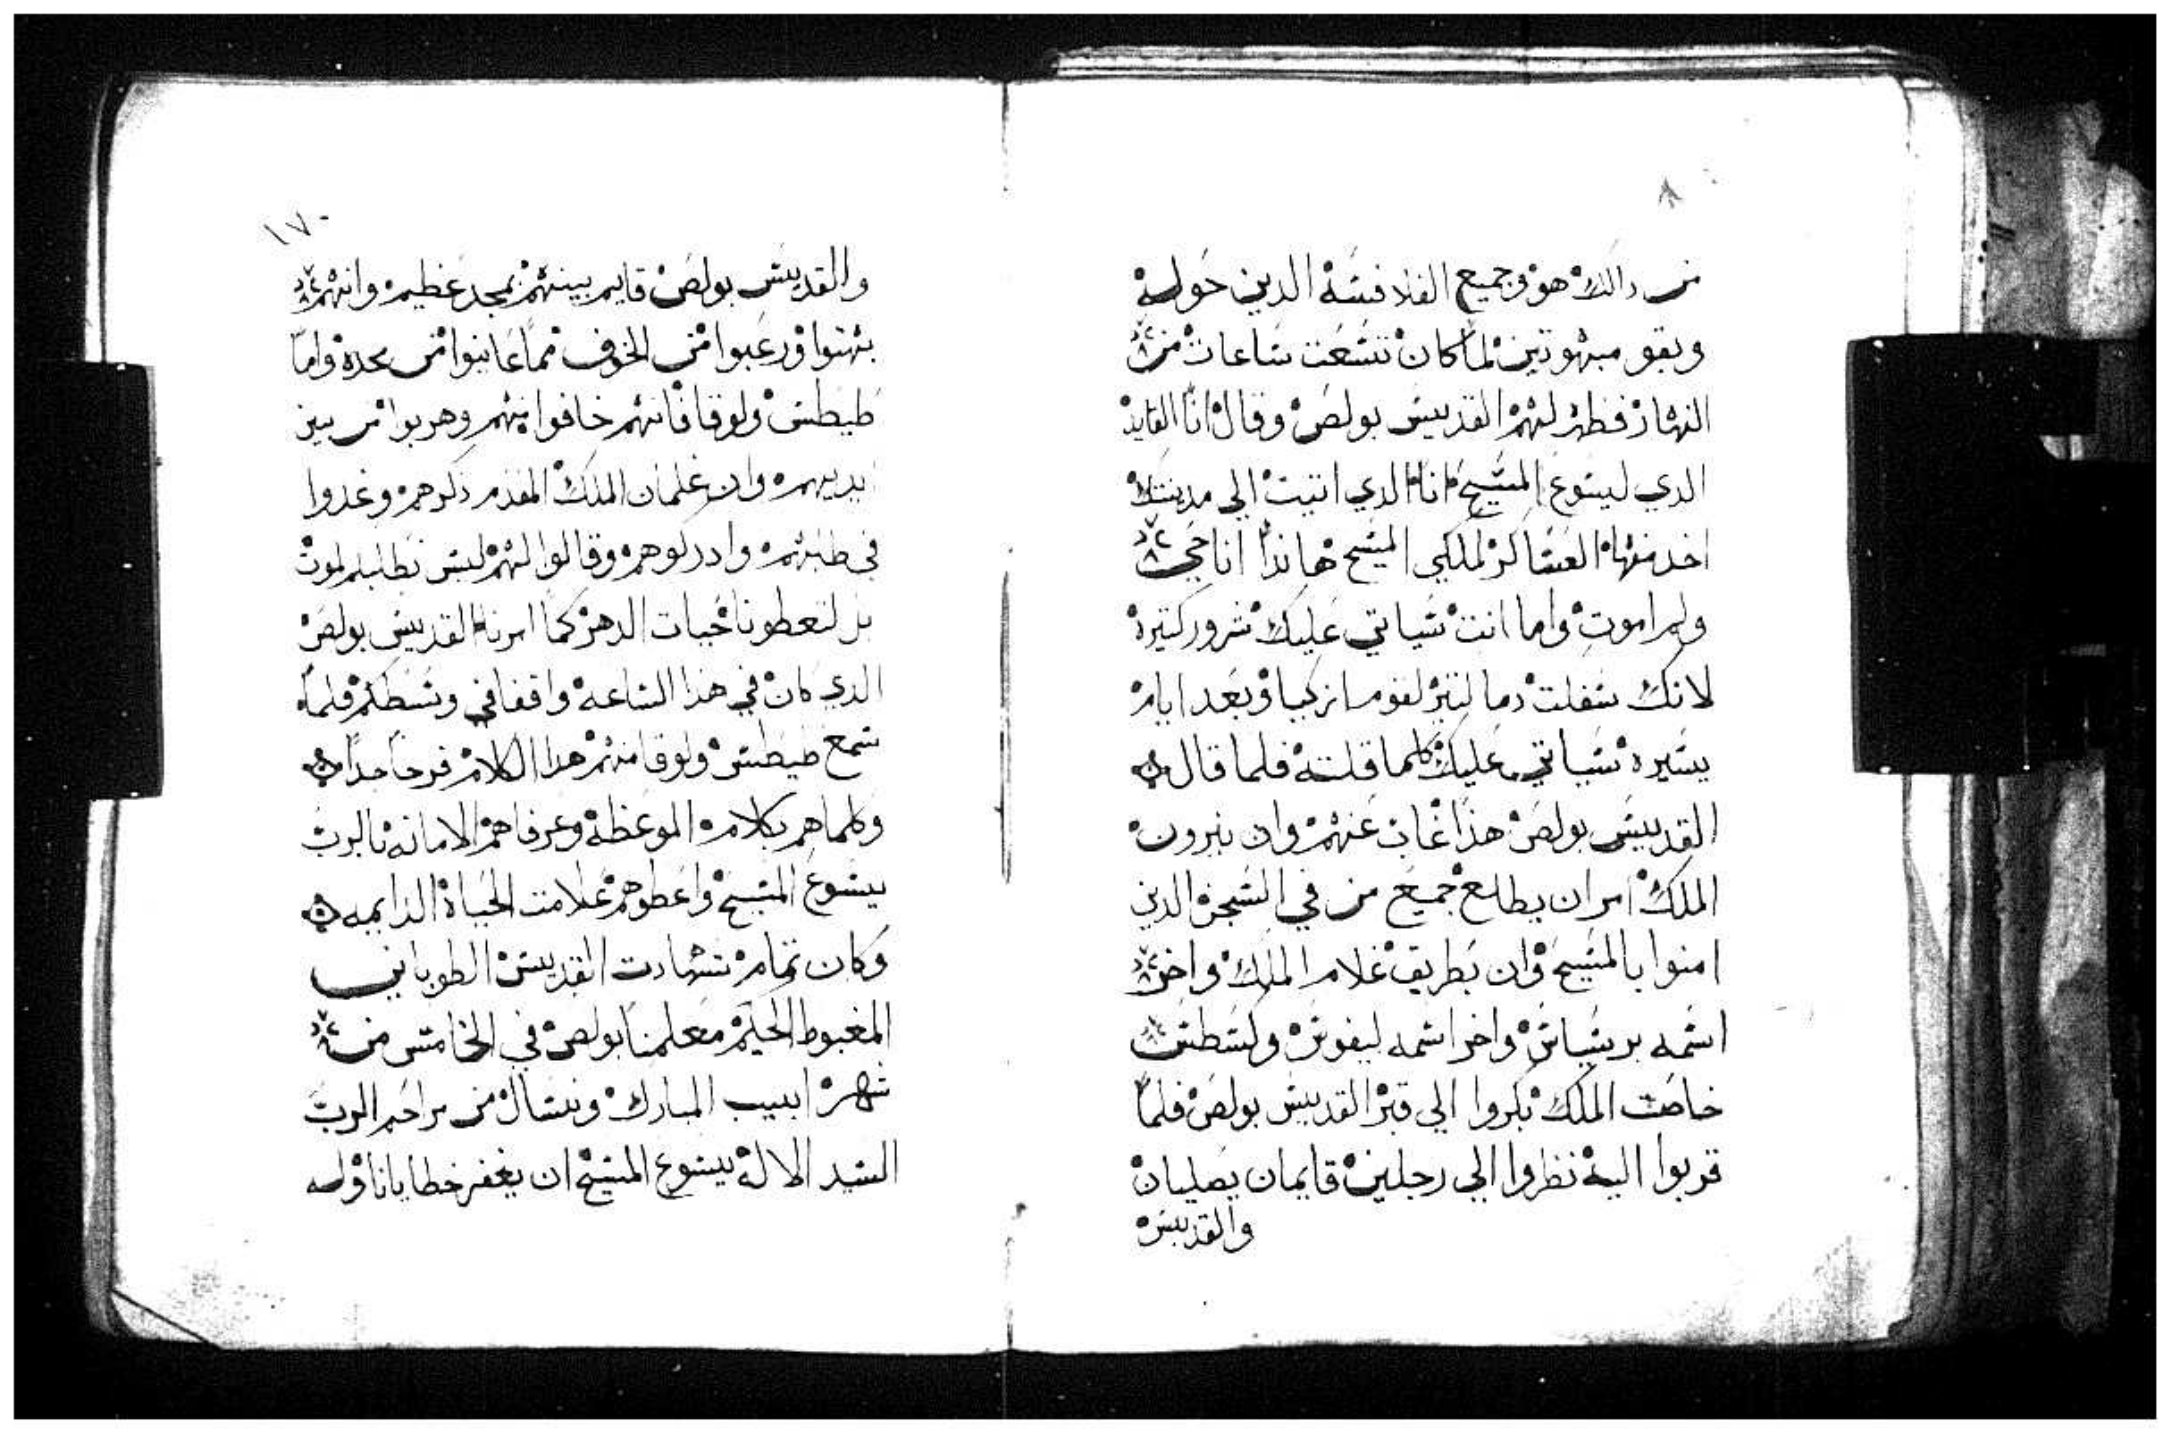 من دالك هو وجميع الفلافسه الدين حوله
وبقو مبهوتين لما كان تسعت ساعات من
النهار فظهر لهم القديس بولص وقال انا القايد
الدي ليسوع المسيح انا الدي اتيت الي مدينتك
اخد منها العساكر لملكي المسيح هاندا انا حي
ولم اموت واما انت سياتي عليك شرور كتيرة
لانك سفكت دما لقوم ازكيا وبعد ايام
يسيره سياتي عليك كلما قلته فلما قال
القديس بولص هذا غاب عنهم وان نيرون
الملك امر ان يطلع جميع من في السجن الدين
امنوا بالمسيح وان بطريق غلام الملك واخر
اسمه برسياس واخر اسمه ليفوس وكسطس
خاصت الملك بكروا الي قبر القديس بولص فلما
قربوا اليه نظروا الي رجلين قايمان يصليان
والقديس
١٧٠
والقديس بولص قايم بينهم بمجد عظيم وانهم
بهتوا ورعبوا من الخوف مما عاينوا من مجده واما
طيطس ولوقا فانهم خافوا منهم وهربوا من بين
ايديهم وان غلمان الملك المقدم ذكرهم وغدوا
في طلبهم وادركوهم وقالوا لهم ليس نطلبكم لموت
بل لتعطونا حيات الدهر كما امرنا القديس بولص
الدي كان في هذا الساعه واقفا في وسطكم فلما
سمع طيطس ولوقا منهم هدا الكلام فرحا جدا
وكلماهم بكلام الموعظه وعرفاهم الامانه بالرب
يسوع المسيح واعطوهم علامت الحياة الدايمه
وكان تمام شهادت القديس الطوباني
المغبوط الحكيم معلمنا بولص في الخامس من
شهر ابيب المبارك ونسال من مراحم الرب
السيد الاله يسوع المسيح ان يغفر خطايانا وله